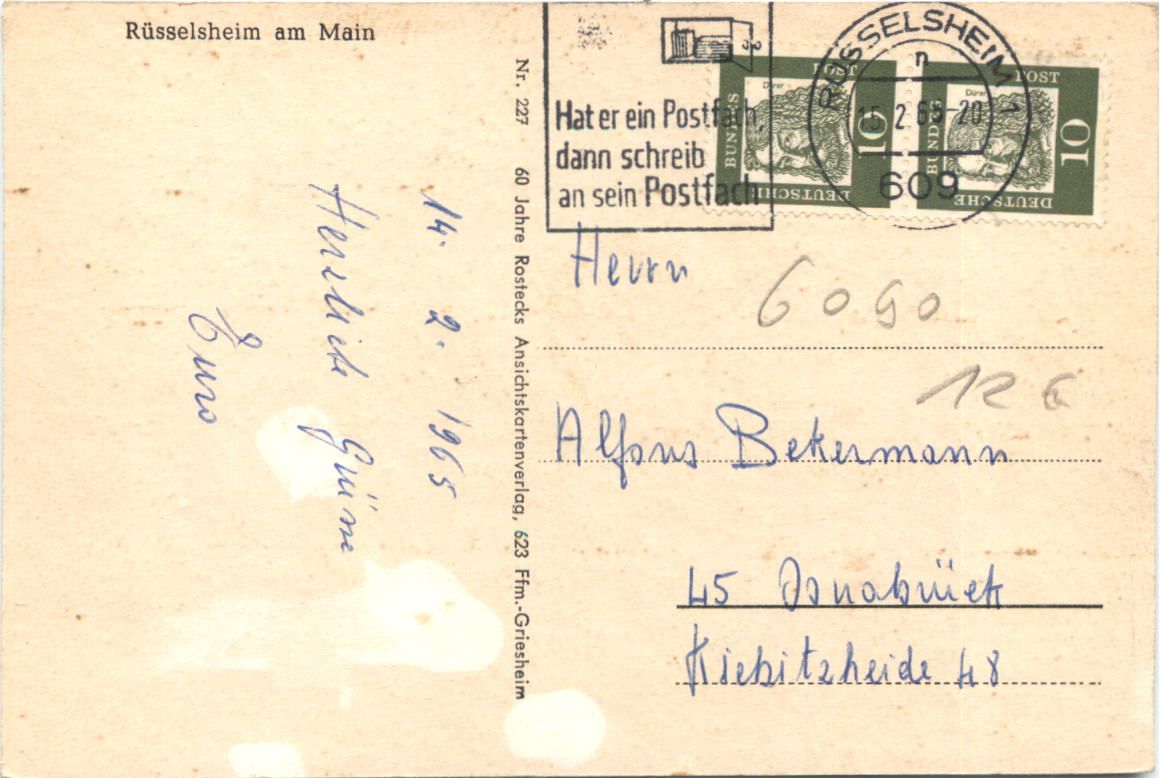 Rüsselsheim am Main
14. 2. 1965
Herzliche Grüsse
Nr. 227 60 Jahre Rostecks Ansichtskartenverlag, 623 Ffm.-Griesheim
Hat er ein Postfach,
dann schreib
an sein Postfach
RÜSSELSHEIM 1
n
15.2.65-20
609
DEUTSCHE
BUNDES
POST
Dürer
10
DEUTSCHE
BUNDES
POST
Dürer
10
Herrn
6090
12 €
Alfons Bekermann
45 Osnabrück
Kiebitzheide 48